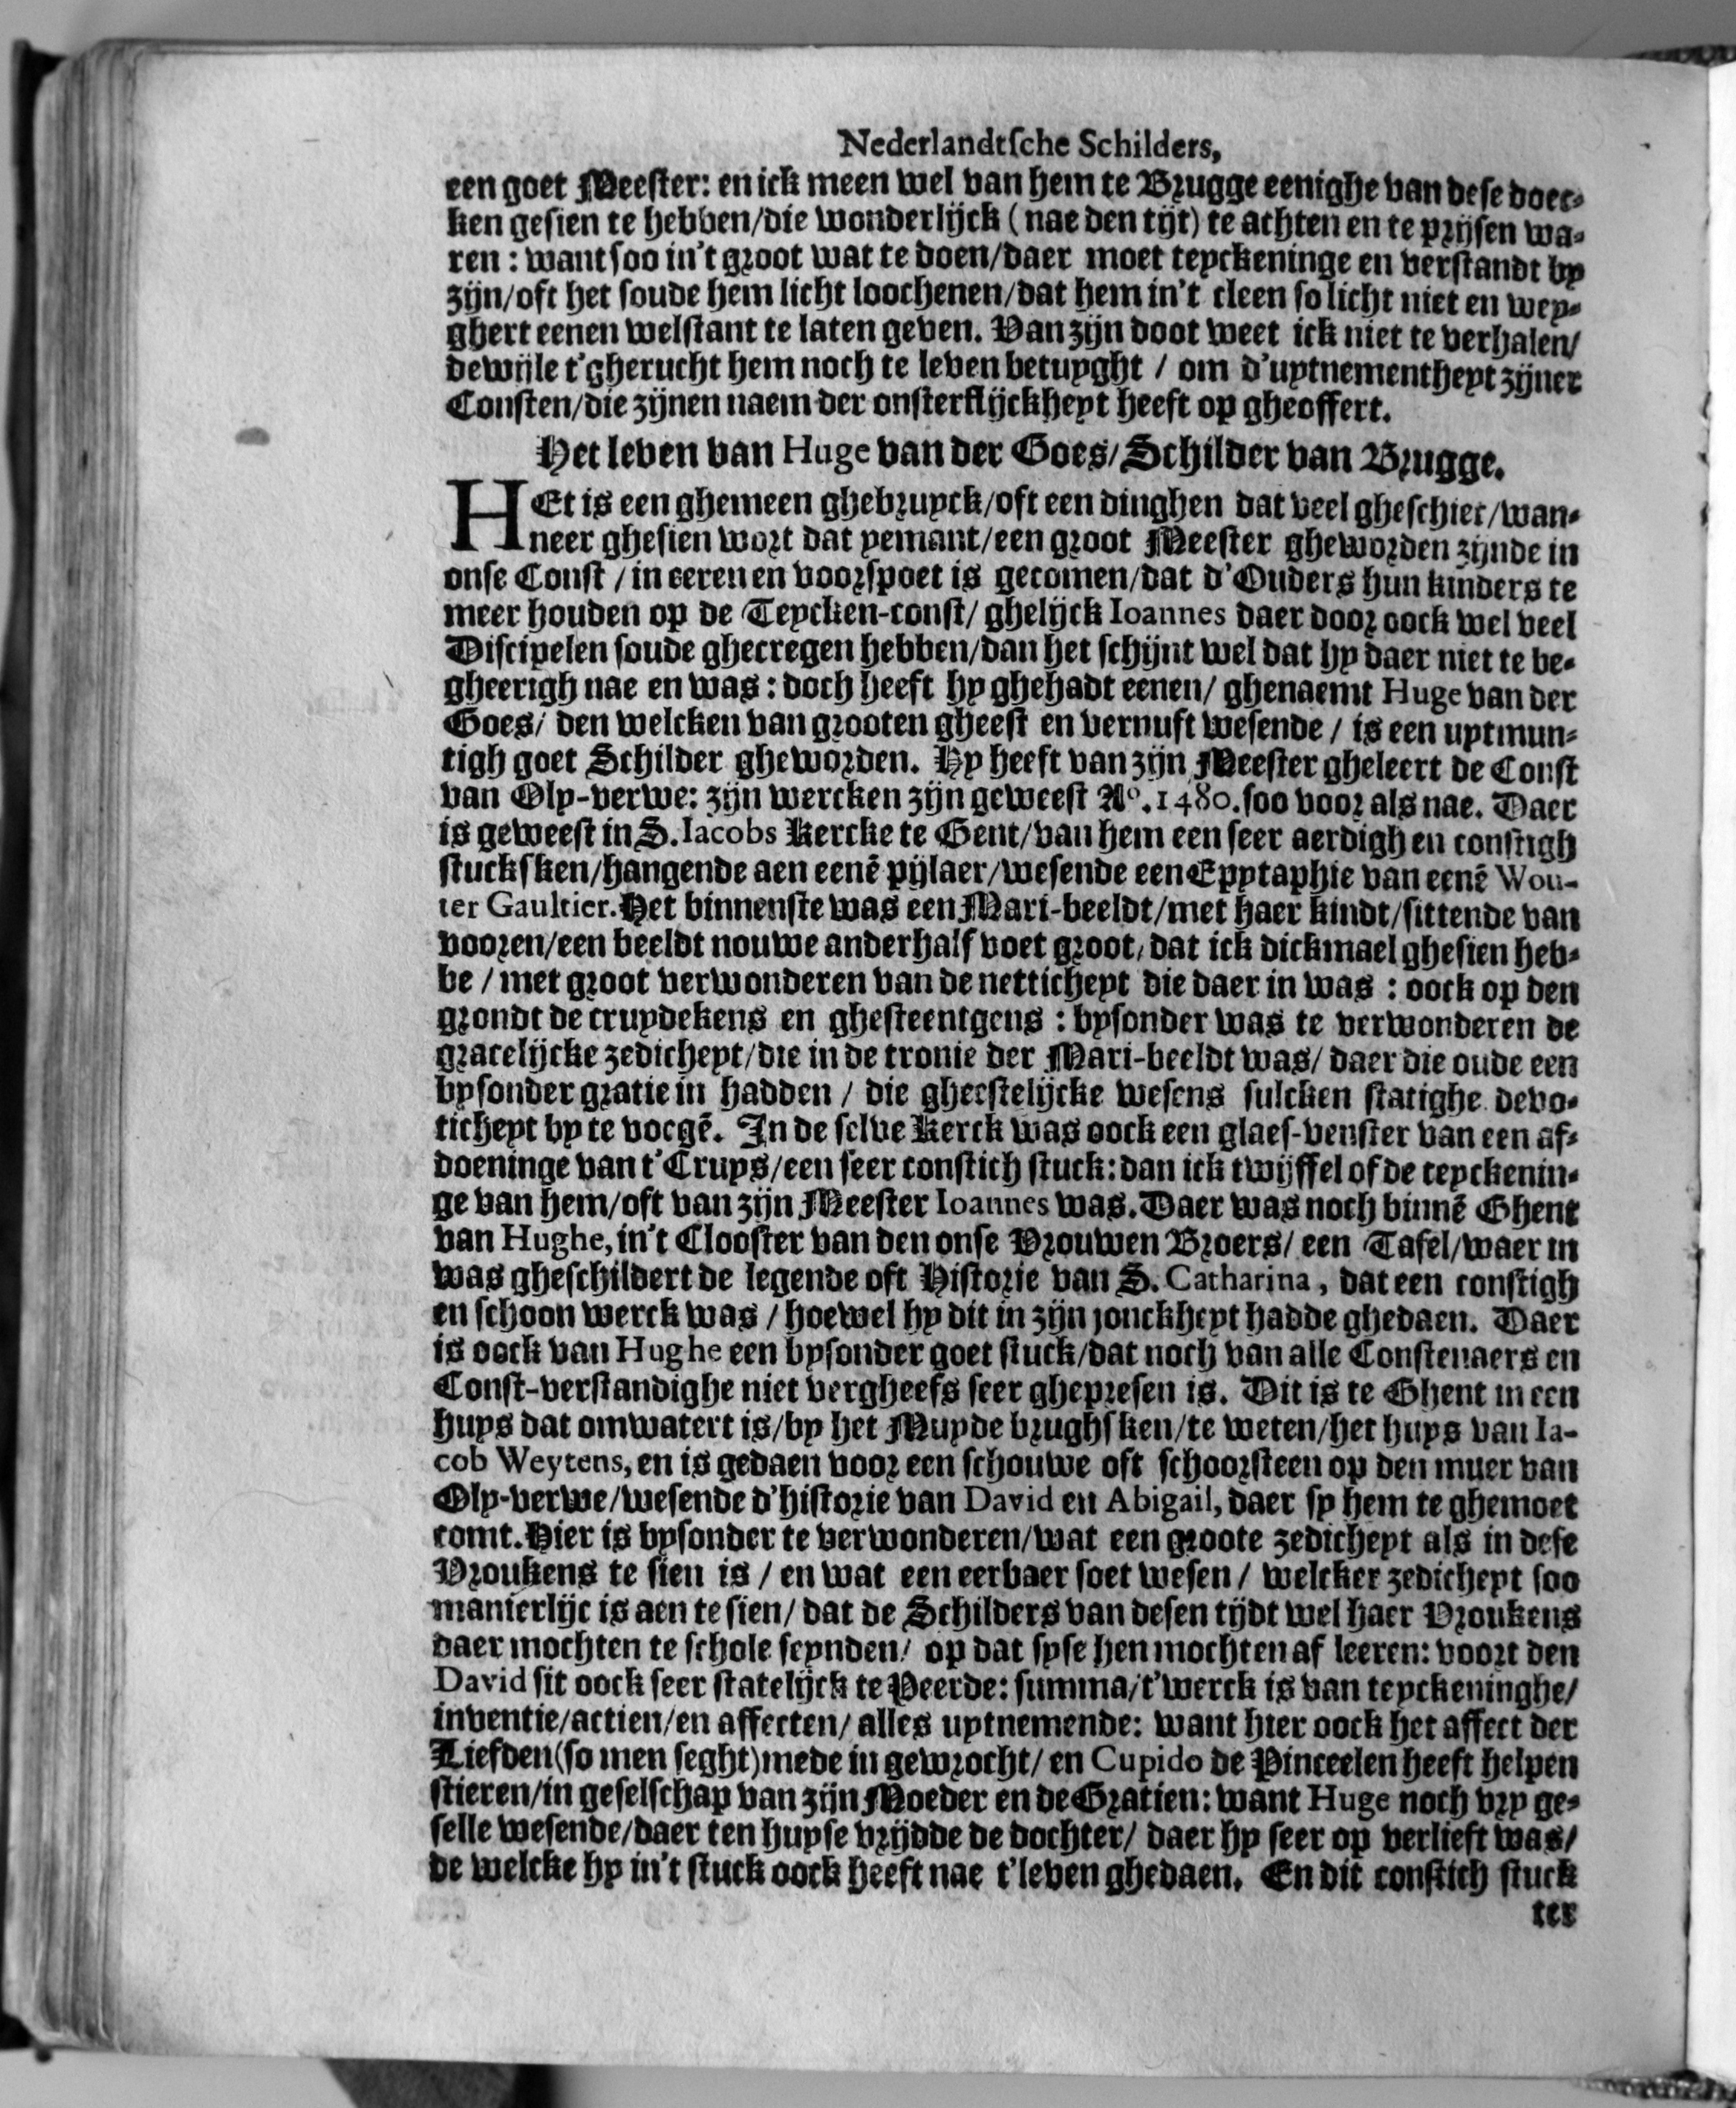 Nederlandtſche Schilders,
een goet Meeſter: en ick meen wel van hem te Brugge eenighe van deſe doec-
ken geſien te hebben/die wonderlijck (nae den tijt) te achten en te prijſen wa-
ren: want ſoo in't groot wat te doen/daer moet teyckeninge en verſtandt by
zijn/oft het ſoude hem licht loochenen/dat hem in't cleen ſo licht niet en wey-
ghert eenen welſtant te laten geven. Van zijn doot weet ick niet te verhalen/
dewijle t'gherucht hem noch te leven betuyght / om d'uytnementheyt zijner
Conſten/die zijnen naem der onſterflijckheyt heeft op gheoffert.
Het leven van Huge van der Goes/Schilder van Brugge.
HEt is een ghemeen ghebruyck/oft een dinghen dat veel gheſchiet/wan-
neer gheſien wort dat yemant/een groot Meeſter gheworden zijnde in
onſe Conſt / in eeren en voorſpoet is gecomen/dat d'Ouders hun kinders te
meer houden op de Teycken-conſt/ ghelijck Ioannes daer door oock wel veel
Diſcipelen ſoude ghecregen hebben/dan het ſchijnt wel dat hy daer niet te be-
gheerigh nae en was: doch heeft hy ghehadt eenen/ ghenaemt Huge van der
Goes/ den welcken van grooten gheeſt en vernuft weſende / is een uytmun-
tigh goet Schilder gheworden. Hy heeft van zijn Meeſter gheleert de Conſt
van Oly-verwe: zijn wercken zijn geweeſt Aº. 1480. ſoo voor als nae. Daer
is geweeſt in S. Iacobs Kercke te Gent/van hem een ſeer aerdigh en conſtigh
ſtuckſken/hangende aen eenē pijlaer/weſende een Epytaphie van eenē Wou-
ter Gaultier. Het binnenſte was een Mari-beeldt/met haer kindt/ſittende van
vooren/een beeldt nouwe anderhalf voet groot/dat ick dickmael gheſien heb-
be / met groot verwonderen van de netticheyt die daer in was: oock op den
grondt de cruydekens en gheſteentgens: byſonder was te verwonderen de
gracelijcke zedicheyt/die in de tronie der Mari-beeldt was/ daer die oude een
byſonder gratie in hadden / die gheeſtelijcke weſens ſulcken ſtatighe devo-
ticheyt by te voegē. In de ſelve Kerck was oock een glaeſ-venſter van een af-
doeninge van t'Cruys/een ſeer conſtich ſtuck: dan ick twijffel of de teyckenin-
ge van hem/oft van zijn Meeſter Ioannes was. Daer was noch binnē Ghent
van Hughe, in't Clooſter van den onſe Vrouwen Broers/ een Tafel/waer in
was gheſchildert de legende oft Hiſtorie van S. Catharina, dat een conſtigh
en ſchoon werck was / hoewel hy dit in zijn jonckheyt hadde ghedaen. Daer
is oock van Hughe een byſonder goet ſtuck/dat noch van alle Conſtenaers en
Conſt-verſtandighe niet vergheefs ſeer ghepreſen is. Dit is te Ghent in een
huys dat omwatert is/by het Muyde brughſken/te weten/het huys van Ia-
cob Weytens, en is gedaen voor een ſchouwe oft ſchoorſteen op den muer van
Oly-verwe/weſende d'hiſtorie van David en Abigail, daer ſy hem te ghemoet
comt. Hier is byſonder te verwonderen/wat een groote zedicheyt als in deſe
Vroukens te ſien is / en wat een eerbaer ſoet weſen / welcker zedicheyt ſoo
manierlijc is aen te ſien/ dat de Schilders van deſen tijdt wel haer Vroukens
daer mochten te ſchole ſeynden/ op dat ſyſe hen mochten af leeren: voort den
David ſit oock ſeer ſtatelijck te Peerde: ſumma/t'werck is van teyckeninghe/
inventie/actien/en affecten/ alles uytnemende: want hier oock het affect der
Liefden (ſo men ſeght) mede in gewrocht/ en Cupido de Pinceelen heeft helpen
ſtieren/in geſelſchap van zijn Moeder en de Gratien: want Huge noch vry ge-
ſelle weſende/daer ten huyſe vrijdde de dochter/ daer hy ſeer op verlieft was/
de welcke hy in't ſtuck oock heeft nae t'leven ghedaen. En dit conſtich ſtuck
ter